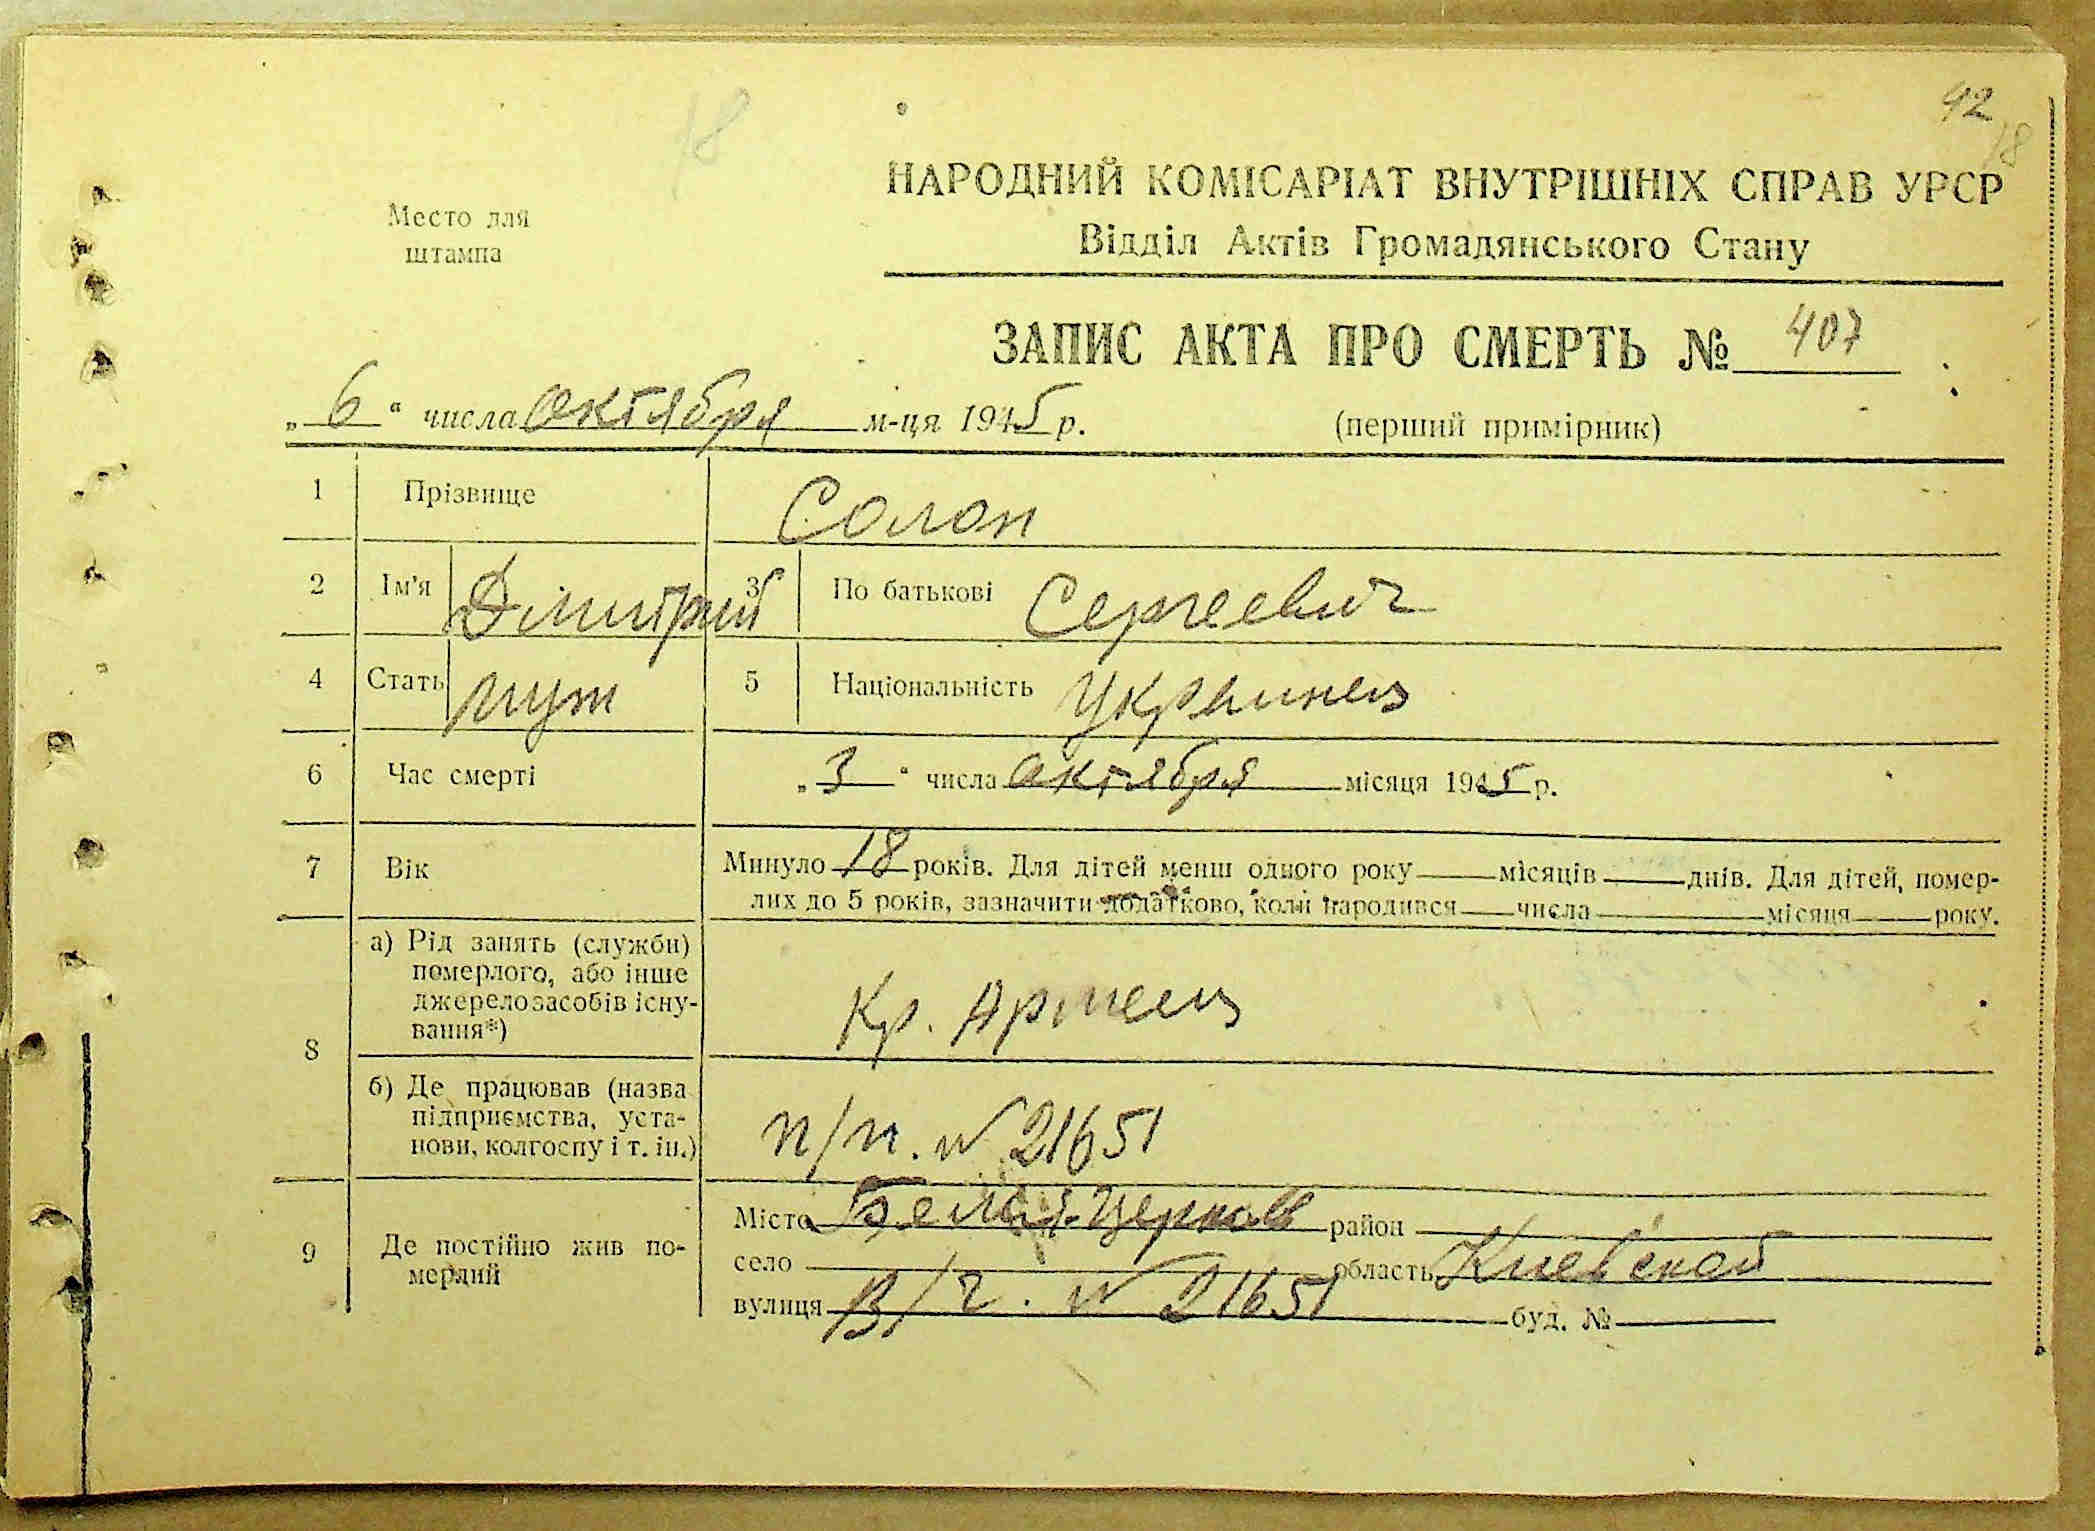 92
18
18
Место для
штампа
НАРОДНИЙ КОМІСАРІАТ ВНУТРІШНІХ СПРАВ УРСР
Відділ Актів Громадянського Стану
ЗАПИС АКТА ПРО СМЕРТЬ № 407
„6“ числа октября м-ця 1945 р.
(перший примірник)
1 Прізвище Солоп
2 Ім'я Дмитрий 3 По батькові Сергеевич
4 Стать муж 5 Національність Украинец
6 Час смерті „3“ числа октября місяця 1945 р.
7 Вік Минуло 18 років. Для дітей менш одного року місяців днів. Для дітей, помер-
лих до 5 років, зазначити додатково, коли народився числа місяця року.
8 а) Рід занять (служби)
померлого, або інше
джерело засобів існу-
вання*)
Кр. Армеец
б) Де працював (назва
підприємства, уста-
нови, колгоспу і т. ін.)
п/п. № 21651
9 Де постійно жив по-
мерлий
Місто Белая-Церковь район
село область Киевской
вулиця В/ч. № 21651 буд. №